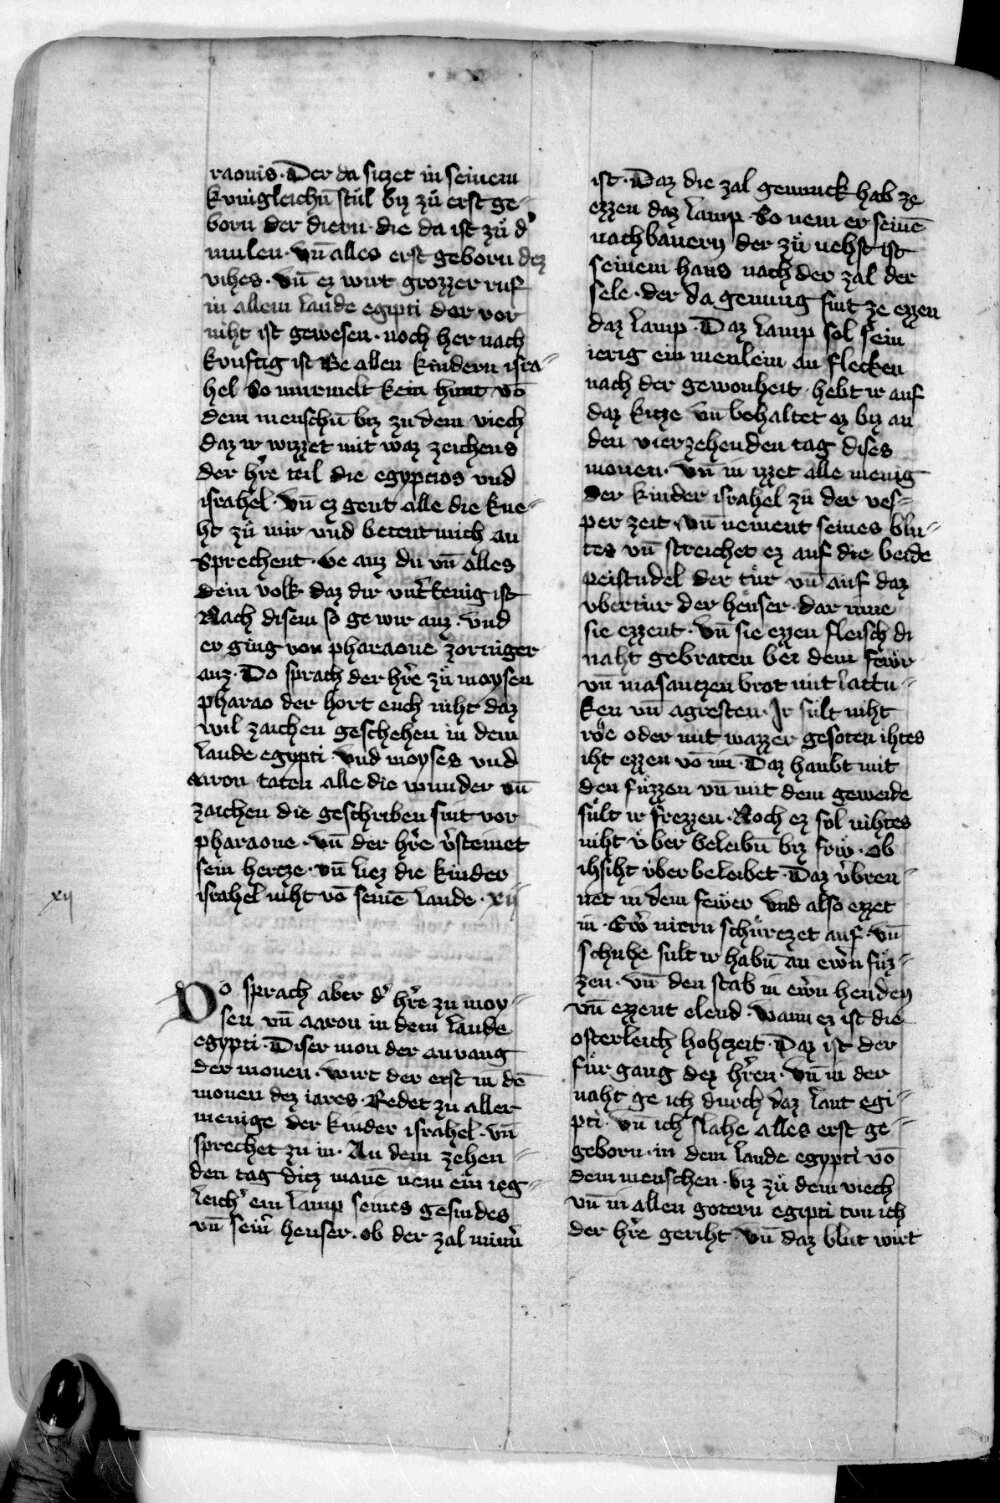 raonis · Der da siczet in seinem
kunigleichn̄ stůl biz zů erst ge-
born der diern · die da ist zů d'
mulen · vn̄ alles erst geborn dez
vihes · vn̄ ez wirt grozzer ruf
in allem lande egipti der vor
niht ist gewesen · noch her nach
kunftig ist Be allen kindern isra-
hel So murmelt kein hunt vō
dem menschn̄ biz zu dem viech
daz ir wizzet mit waz zeichens
der hr̄e teil die egypcios vnd
israhel · vn̄ ez gent alle die kne-
ht zů mir vnd betent mich an
Sprechent · Ge auz du vn̄ alles
dein volk daz dir vnt'tenig ist
Nach disem so ge wir auz · vnd
er ging von pharaone zorniger
auz · Do sprach der hr̄e zů moysen
pharao der hort euch niht daz
vil zaichen geschehen in dem
lande egypti · vnd moyses vnd
aaron taten alle die wunder vn̄
zaichen die geschriben sint vor
pharaone · vn̄ der hr̄e v'steinet
sein hercze · vn̄ liez die kinder
israhel niht vō seinē lande · xij
xij
Do sprach aber d' hr̄e zu moy-
sen vn̄ aaron in dem lande
egypti · Diser mon der anvang
der monen · wirt der erst in dē
monen dez iares · Redet zu aller
menige der kinder israhel · vn̄
sprechet zu in · An dem zehen-
den tag dicz manē nem ein ieg-
leich' ein lamp seines gesindes
vn̄ sein' heuser · ob der zal minn'
ist · Daz die zal genunck hab ze
ezzen daz lamp · So nem er seinē
nachbauern der zů nehst ist
seinem haus nach der zal der
sele · der da genung sint ze ezzen
daz lamp · Daz lamp sol sein
ierig ein menlein an flecken
nach der gewonheit · hebt ir auf
daz kitze vn̄ behaltet ez biz an
den vierzehenden tag dises
monen · vn̄ in izzet alle menig
der kinder israhel zu der ves-
per zeit · vn̄ nement seines blu-
tes vn̄ streichet ez auf die beide
peistudel der tůr vn̄ auf daz
vbertůr der heuser · dar inne
sie ezzent · vn̄ sie ezzen fleisch di
naht gebraten bei dem fewr
vn̄ masantzen brot mit lattu-
ken vn̄ agresten · Ir sůlt niht
roe oder mit wazzer gesoten ihtes
iht ezzen vō im · Daz haubt mit
den fůzzen vn̄ mit dem geweide
sůlt ir frezzen · Noch ez sol nihtes
niht v̊ber beleibn̄ biz frů · ob
ihsiht v̊ber beleibet · Daz v'bren-
net in dem fewer vnd also ezzet
in · Ew' niern schůrczet auf · vn̄
schuhe sult ir habn̄ an ewrn fůz-
zen · vn̄ den stab in ewrn henden
vn̄ ezzent elend · wann ez ist die
osterleich hohczeit · Daz ist der
fůrgang dez hr̄en · vn̄ in der
naht ge ich durch daz lant egi-
pti · vn̄ ich slahe alles erst ge-
geborn · in dem lande egypti vō
dem menschen · biz zů dem viech
vn̄ in allen gotern egipti tun ich
der hr̄e geriht · vn̄ daz blut wirt